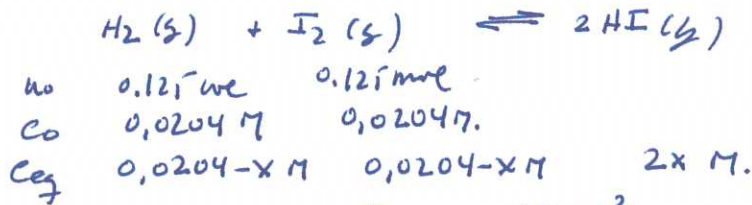 H2 (g) + I2 (g) ⇌ 2 HI (g)
no 0.125 mol 0.125 mol
Co 0,0204 M 0,0204 M.
Ceq 0,0204-x M 0,0204-x M 2x M.
2